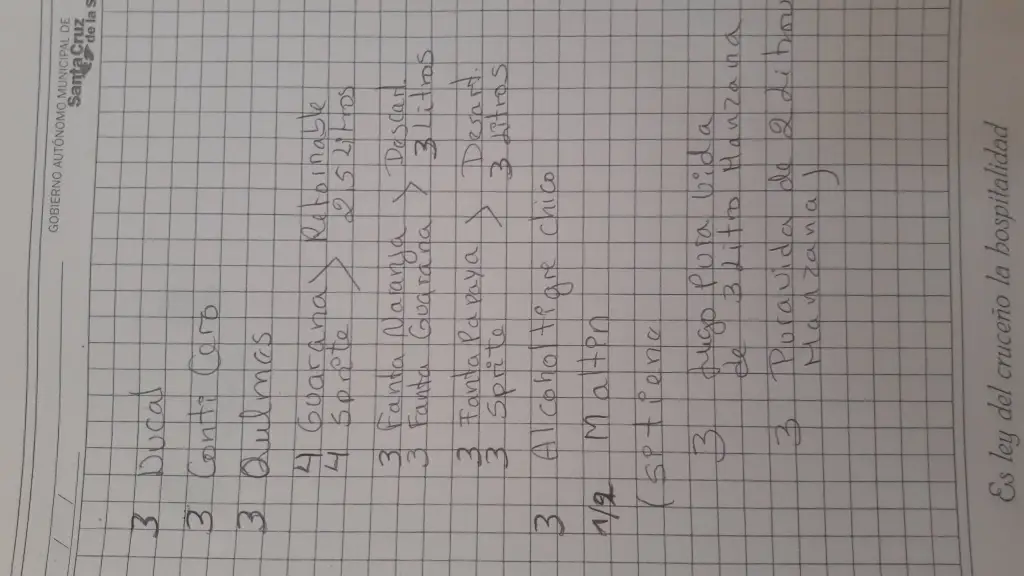 GOBIERNO AUTÓNOMO MUNICIPAL DE
Santa Cruz
de la S
/ /
3 Ducal
3 Conti Cero
3 Quilmas
4 Guarana > Retoinable
4 Sprite > 2,5 Litros
3 Fanta Naranja > Descart.
3 Fanta Guarana > 3 Litros
3 Fanta Papaya > Descart.
3 Sprite 3 Litros
3 Alcohol tigre chico
1/2 Maltin
(
3 Jugo Pura Vida
de 3 Litro Manzana
3 Puravida de 2 Litros
Manzana)
Es ley del cruceño la hospitalidad